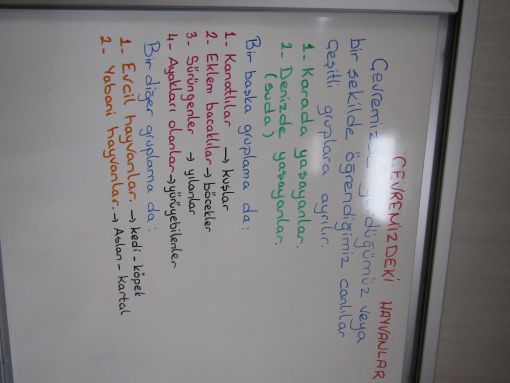 ÇEVREMİZDEKİ HAYVANLAR
Çevremizde gördüğümüz veya
bir şekilde öğrendiğimiz canlılar
çeşitli gruplara ayrılır.
1- Karada yaşayanlar.
2- Denizde yaşayanlar.
(suda)
Bir başka gruplama da:
1- Kanatlılar → kuşlar
2- Eklem bacaklılar → böcekler
3- Sürüngenler → yılanlar
4- Ayakları olanlar → yürüyebilenler
Bir diğer gruplama da:
1- Evcil hayvanlar. → kedi - köpek
2- Yabani hayvanlar. → Aslan - kartal